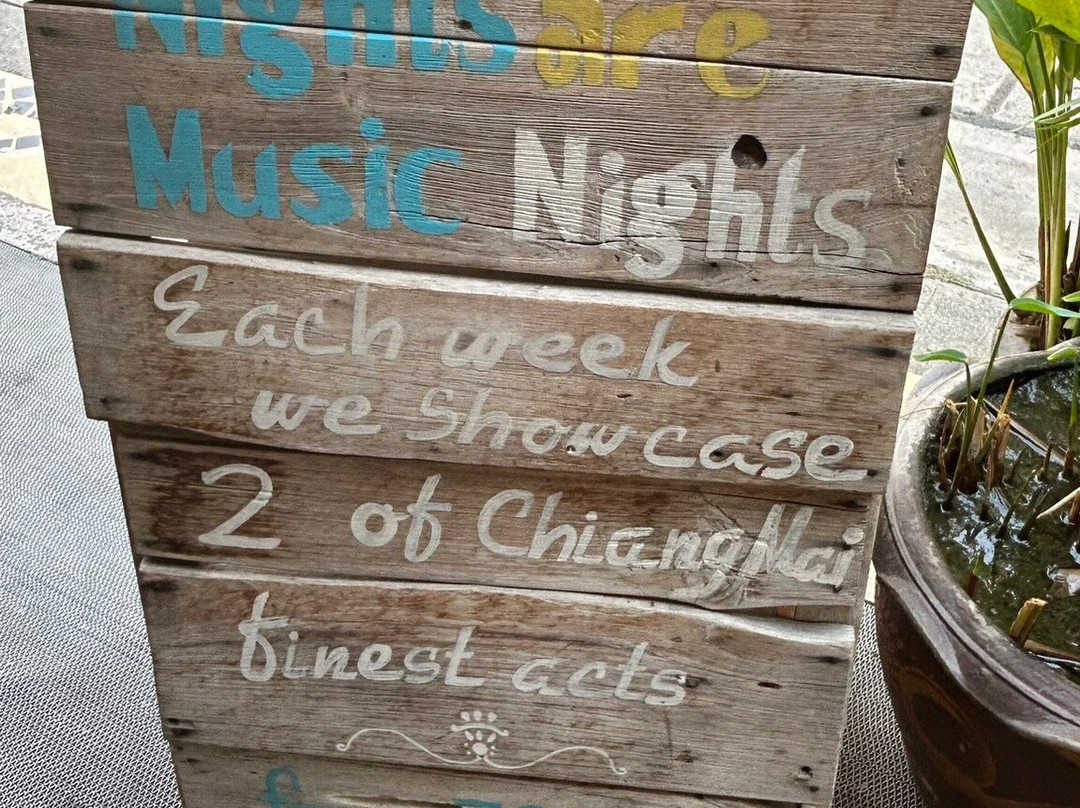 Nights are
Music Nights
Each week
we showcase
2 of ChiangMai
finest acts